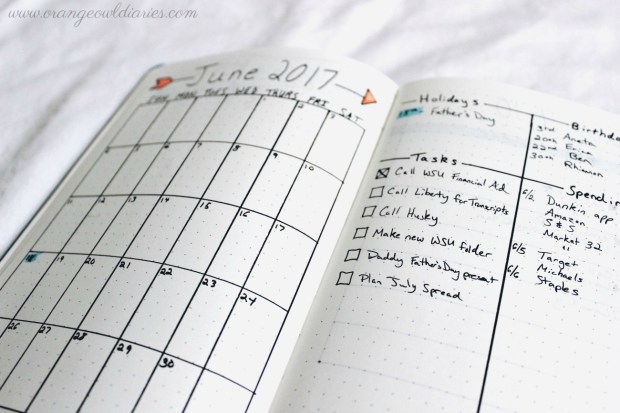 www.orangeowldiaries.com
June 2017
SUN MON TUES WED THURS FRI SAT
1 2 3
7 8 9 10
11 12 13 14 15 16 17
18 19 20 21 22 23 24
26 27 28 29 30
Holidays
18th Father's Day
Tasks
Call WSU Financial Aid
Call Liberty for Transcripts
Call Husky
Make new WSU folder
Daddy Father's Day present
Plan July Spread
Birthda
3rd Aneta
20th
22nd Ben
30th Rhiannon
Spendin
6/2 Dunkin app
Amazon
S & S
Market 32
"
6/5 Target
Michaels
6/6 Staples